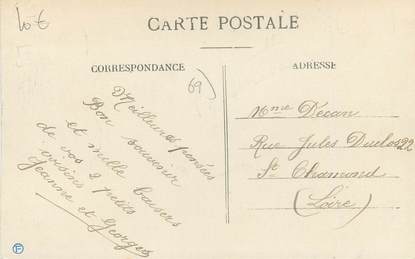 10€
CARTE POSTALE
CORRESPONDANCE
ADRESSE
69
Meilleures pensées
Bon souvenir
et mille baisers
de vos 2 petits
voisins
Jeanne et Georges
Mme Décan
Rue Jules Duclos 22
St Chamond
(Loire)
F